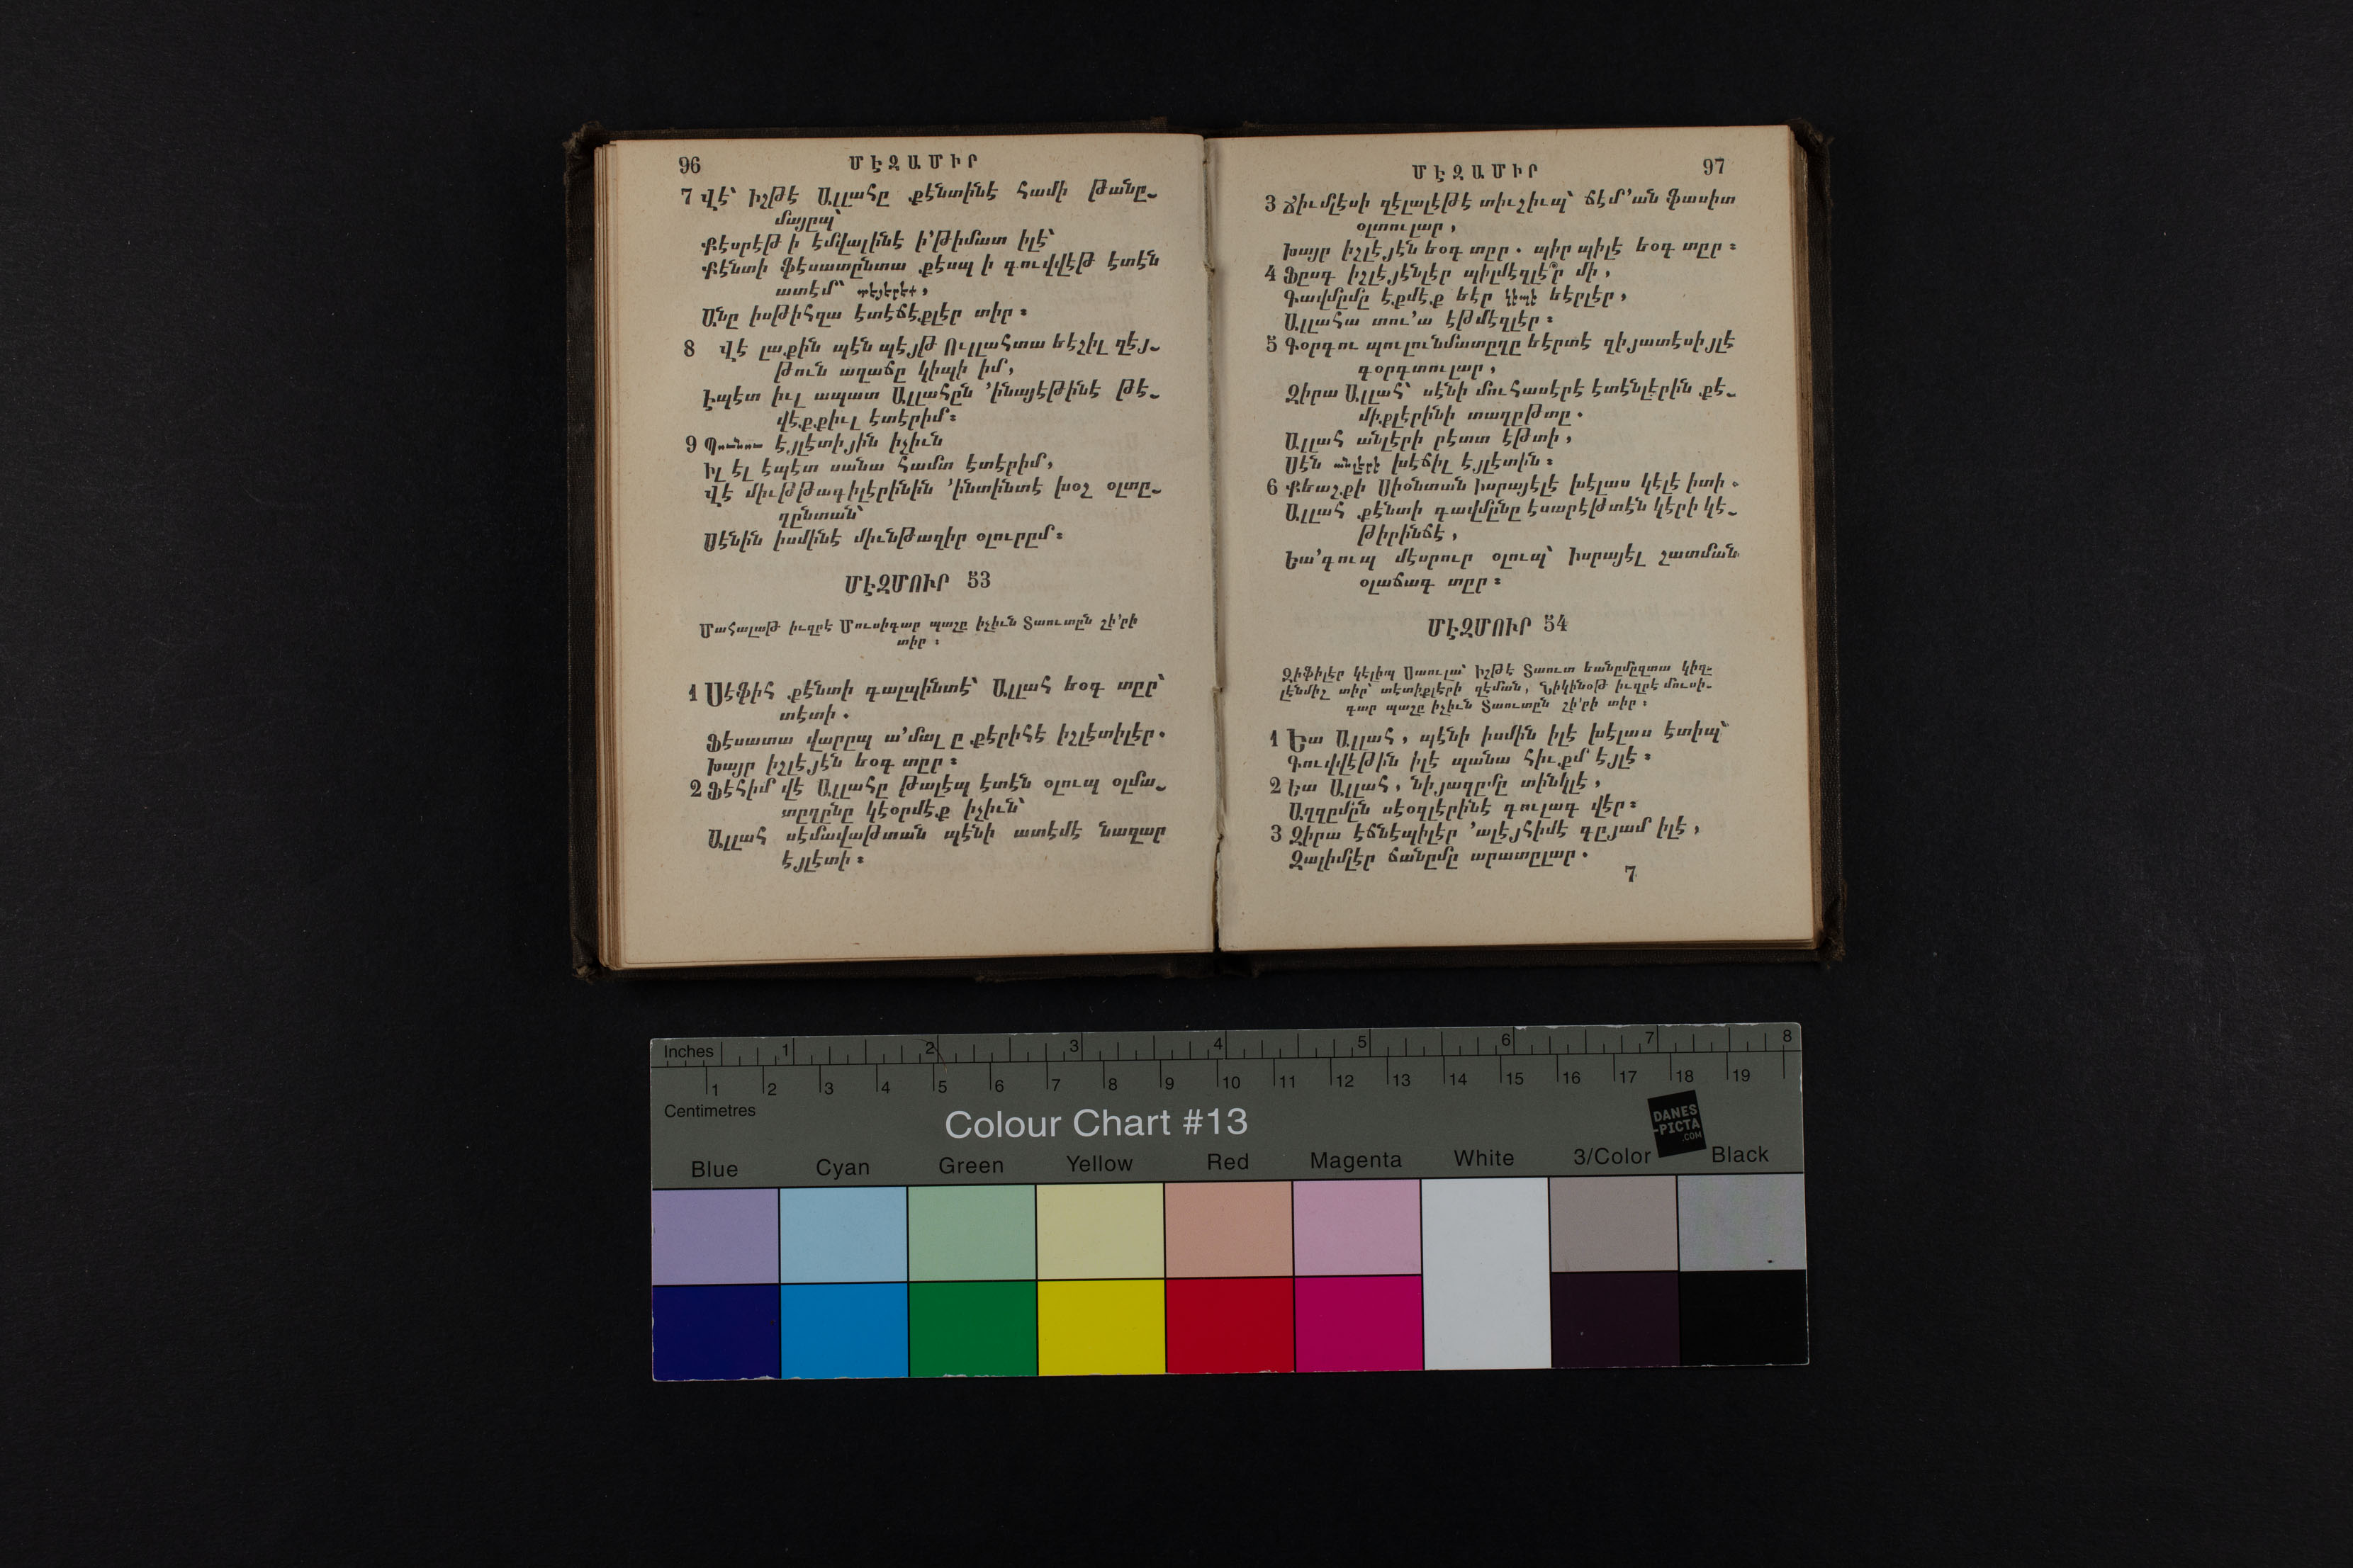 96
ՄԷԶԱՄԻՐ
7 Վէ՝ Իշթէ Ալլահը քէնտինէ համի թանը֊
մայըպ՝
Քէսրէթ ի էմվալինէ ի՚թիմատ իլէ՝
Քէնտի ֆէսատընտա քէսպ ի գուվվէթ էտէն
ատէմ՝ տէյէրէք,
Անը իսթիհզա էտէճէքլէր տիր ։
8 Վէ լաքին պէն պէյթ Ուլլահտա եէշիլ զէյ֊
թուն աղաճը կիպի իմ,
Էպէտ իւլ ապատ Ալլահըն ՚ինայէթինէ թէ֊
վէքքիւլ էտէրիմ։
9 էյլէտիյին իչիւն
Իլ էլ էպէտ սանա համտ էտէրիմ,
Վէ միւթթագիլէրինին ՚ինտինտէ խօշ օլտը֊
ղընտան՝
Սէնին իսմինէ միւնթաղիր օլուրըմ։
ՄԷԶՄՈՒՐ 53
Մահալաթ իւզրէ Մուսիգար պաշը իչիւն Տաուտըն շի՚րի
տիր ։
1 Սէֆիհ քէնտի գալպինտէ՝ Ալլահ եօգ տըր՝
տէտի .
Ֆէսատա վարըպ ա՚մալ ը քէրիհէ իշլէտիլէր.
Խայր իշլէյէն եօգ տըր ։
2 Ֆէհիմ վէ Ալլահը թալէպ էտէն օլուպ օլմա֊
տըղընը կէօրմէք իչիւն՝
Ալլահ սէմավաթտան պէնի ատէմէ նազար
էյլէտի ։
97
ՄԷԶԱՄԻՐ
3 Ճիւմլէսի զէլալէթէ տիւշիւպ՝ ճէմ՚ան ֆասիտ
օլտուլար,
Խայր իշլէյէն եօգ տըր . պիր պիլէ եօգ տըր ։
4 Ֆըսգ իշլէյէնլէր պիլմէզլէ՞ր մի,
Գավմըմը էքմէք եէր կիպի եէրլէր,
Ալլահա տու՚ա էթմէզլէր ։
5 Գօրգու պուլունմատըղը եէրտէ զիյատէսիյլէ
գօրգտուլար,
Զիրա Ալլահ՝ սէնի մուհասէրէ էտէնլէրին քէ֊
միքլէրինի տաղըթտը .
Ալլահ անլէրի րէտտ էթտի,
Սէն անլէրի խէճիլ էյլէտին ։
6 Քեաշքի Սիօնտան Իսրայէլէ խէլաս կէլէ իտի .
Ալլահ քէնտի գավմինը էսարէթտէն կէրի կէ֊
թիրինճէ,
Եա՚գուպ մէսրուր օլուպ՝ Իսրայէլ շատման
օլաճագ տըր ։
ՄԷԶՄՈՒՐ 54
Զիֆիլէր կէլիպ Սաուլա՝ Իշթէ Տաուտ եանըմըզտա կիզ֊
լէնմիշ տիր՝ տէտիքլէրի զէման, Նիկինօթ իւզրէ մուսի֊
գար պաշը իչիւն Տաուտըն շի՚րի տիր ։
1 Եա Ալլահ, պէնի իսմին իլէ խէլաս էտիպ՝
Գուվվէթին իլէ պանա հիւքմ էյլէ ։
2 Եա Ալլահ, նիյազըմը տինկլէ,
Աղզըմըն սէօզլէրինէ գուլագ վէր ։
3 Զիրա էճնէպիլէր ՚ալէյհիմէ գըյամ իլէ,
Զալիմլէր ճանըմը արատըլար .
7
Inches 1 2 3 4 5 6 7 8
1 2 3 4 5 6 7 8 9 10 11 12 13 14 15 16 17 18 19
Centimetres
Colour Chart #13
DANES
-PICTA
.COM
Blue Cyan Green Yellow Red Magenta White 3/Color Black